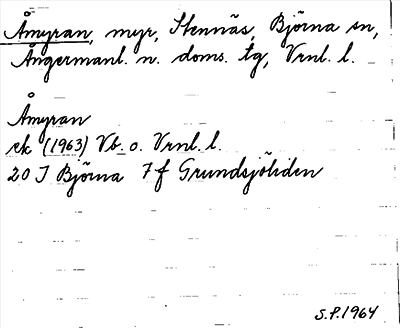 Åmyran, myr, Stennäs, Björna sn,
Ångermanl. n. doms. tg, Vrnl. l.
Åmyran
ek (1963) Vb. o. Vrnl. l.
20 I Björna 7 f Grundsjöliden
S.P. 1964